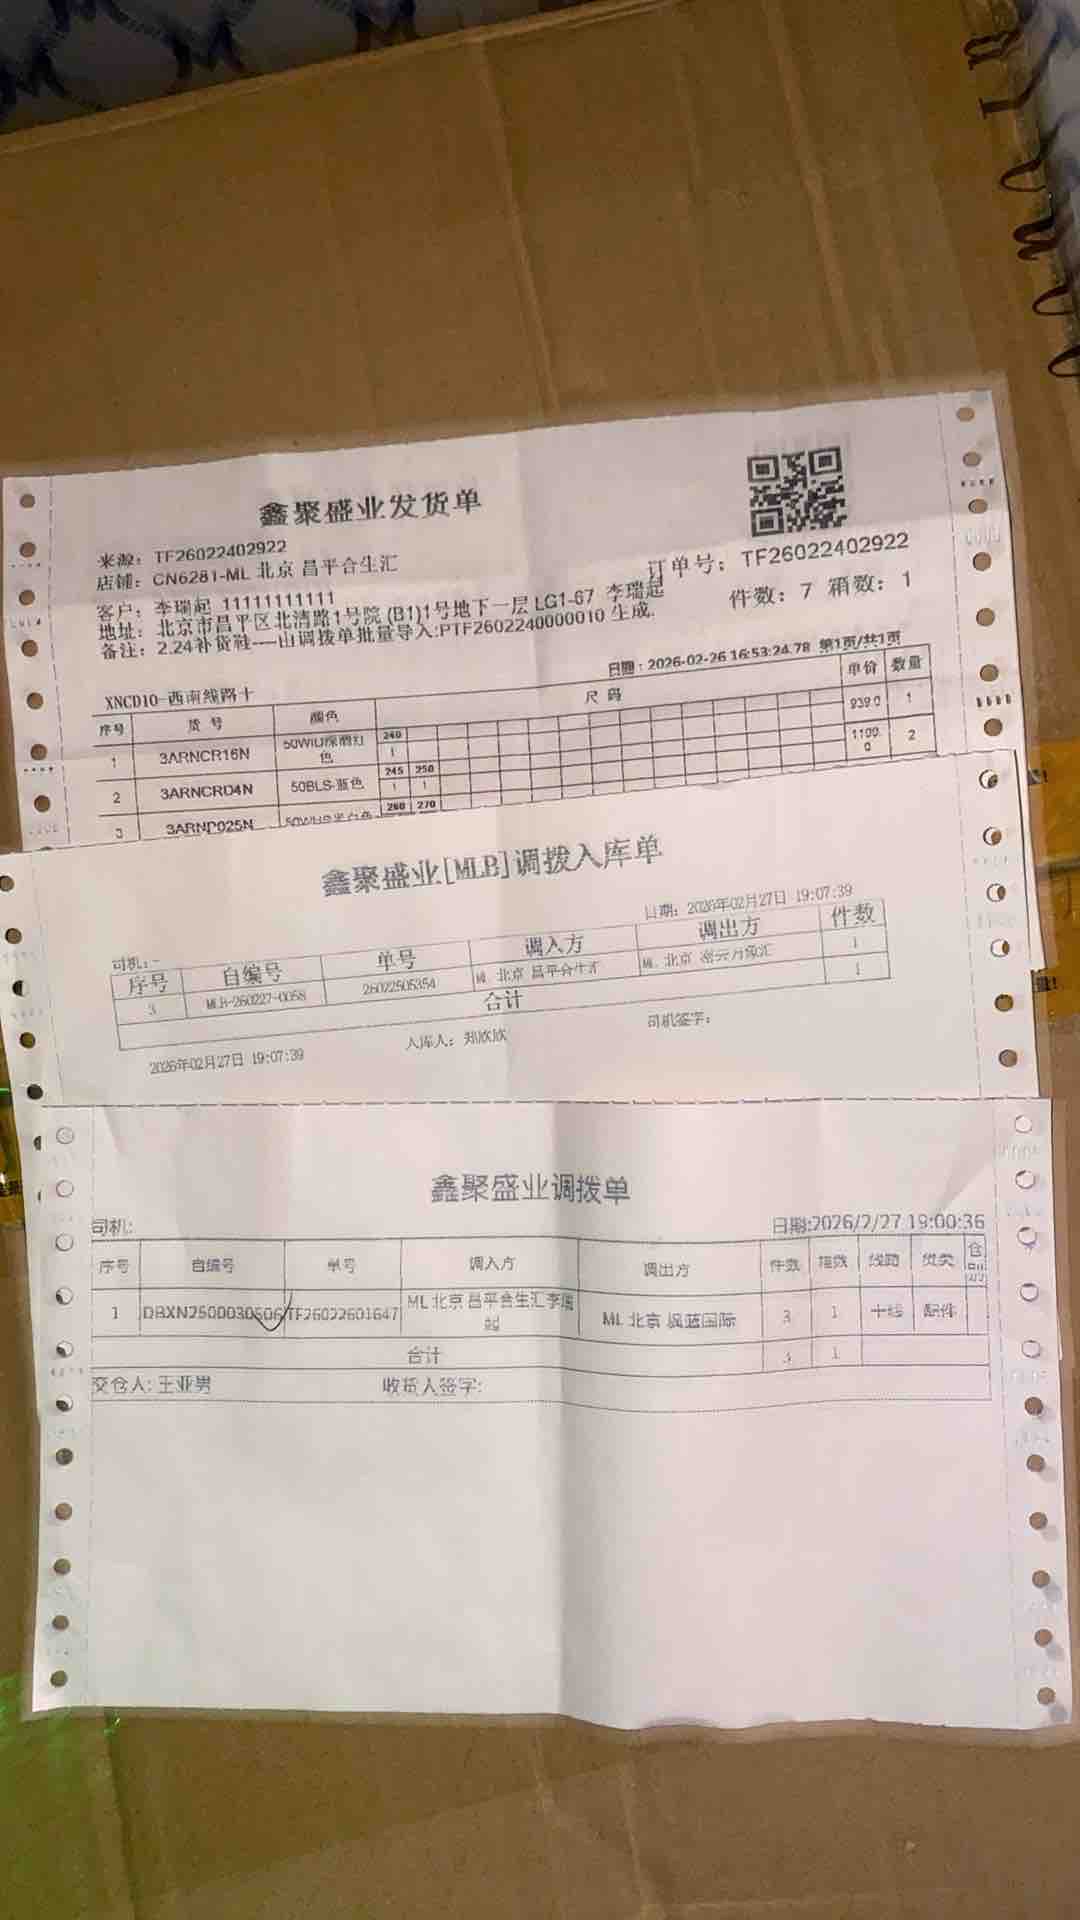 鑫聚盛业发货单
来源：TF26022402922
店铺：CN6281-ML 北京 昌平合生汇
订单号：TF26022402922
客户：李瑞起 11111111111
件数：7 箱数：1
地址：北京市昌平区北清路1号院 (B1)1号地下一层 LG1-67 李瑞起
备注：2.24补货鞋----由调拨单批量导入:PTF2602240000010 生成.
日期：2026-02-26 16:53:24.78 第1页/共1页
XNCD10-西南线路十
序号 货号 颜色 尺码 单价 数量
240
1 3ARNCR16N 50WID深酒红色 1 939.0 1
245 250
2 3ARNCRD4N 50BLS-蓝色 1 1 1100.0 2
260 270
3 3ARNP025N
鑫聚盛业[MLB]调拨入库单
日期：2026年02月27日 19:07:39
司机：-
序号 自编号 单号 调入方 调出方 件数
3 MLB-260227-0058 26022505354 ML 北京 昌平合生汇 ML 北京 密云万象汇 1
合计 1
入库人：郑欣欣 司机签字：
2026年02月27日 19:07:39
鑫聚盛业调拨单
司机: 日期:2026/2/27 19:00:36
序号 自编号 单号 调入方 调出方 件数 箱数 线路 货类 仓别
1 DBXN2500030506 TF26022601647 ML 北京 昌平合生汇李瑞起 ML 北京 枫蓝国际 3 1 十线 配件
合计 3 1
交仓人: 王亚男 收货人签字: